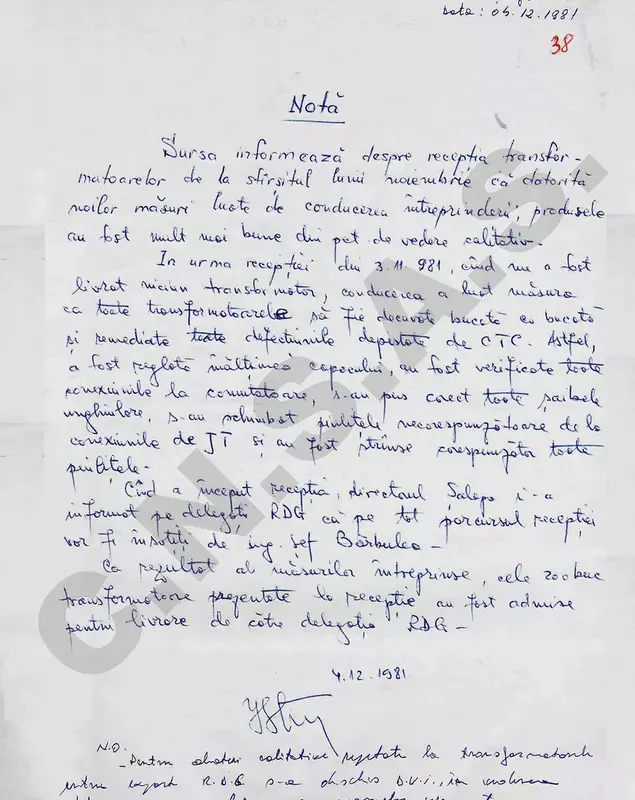 Data: 05.12.1981
38
Notă
Sursa informează despre recepția transfor-
matoarelor de la sfîrșitul lunii noiembrie că datorită
noilor măsuri luate de conducerea întreprinderii, produsele
au fost mult mai bune din pct. de vedere calitativ.
In urma recepției din 3.11.981, cînd nu a fost
livrat niciun transformator, conducerea a luat măsura
ca toate transformatoarele să fie decuvate bucată cu bucată
și remediate toate defecțiunile depistate de CTC. Astfel,
a fost reglată înălțimea capacului, au fost verificate toate
conexiunile la comutatoare, s-au pus corect toate șaibele
unghiulare, s-au schimbat piulițele necorespunzătoare de la
conexiunile de JT și au fost strînse corespunzător toate
piulițele.
Cînd a început recepția, directorul Salapa i-a
informat pe delegații RDG că pe tot parcursul recepției
vor fi însoțiți de ing. șef Bărbulea -
Ca rezultat al măsurilor întreprinse, cele 200 buc
transformatoare prezentate la recepție au fost admise
pentru livrare de către delegații RDG -
4.12.1981
N.O.
- Pentru abateri calitative repetate la transformatorele
export R.D.G. s-a deschis D.U.I., în
C.N.S.A.S.